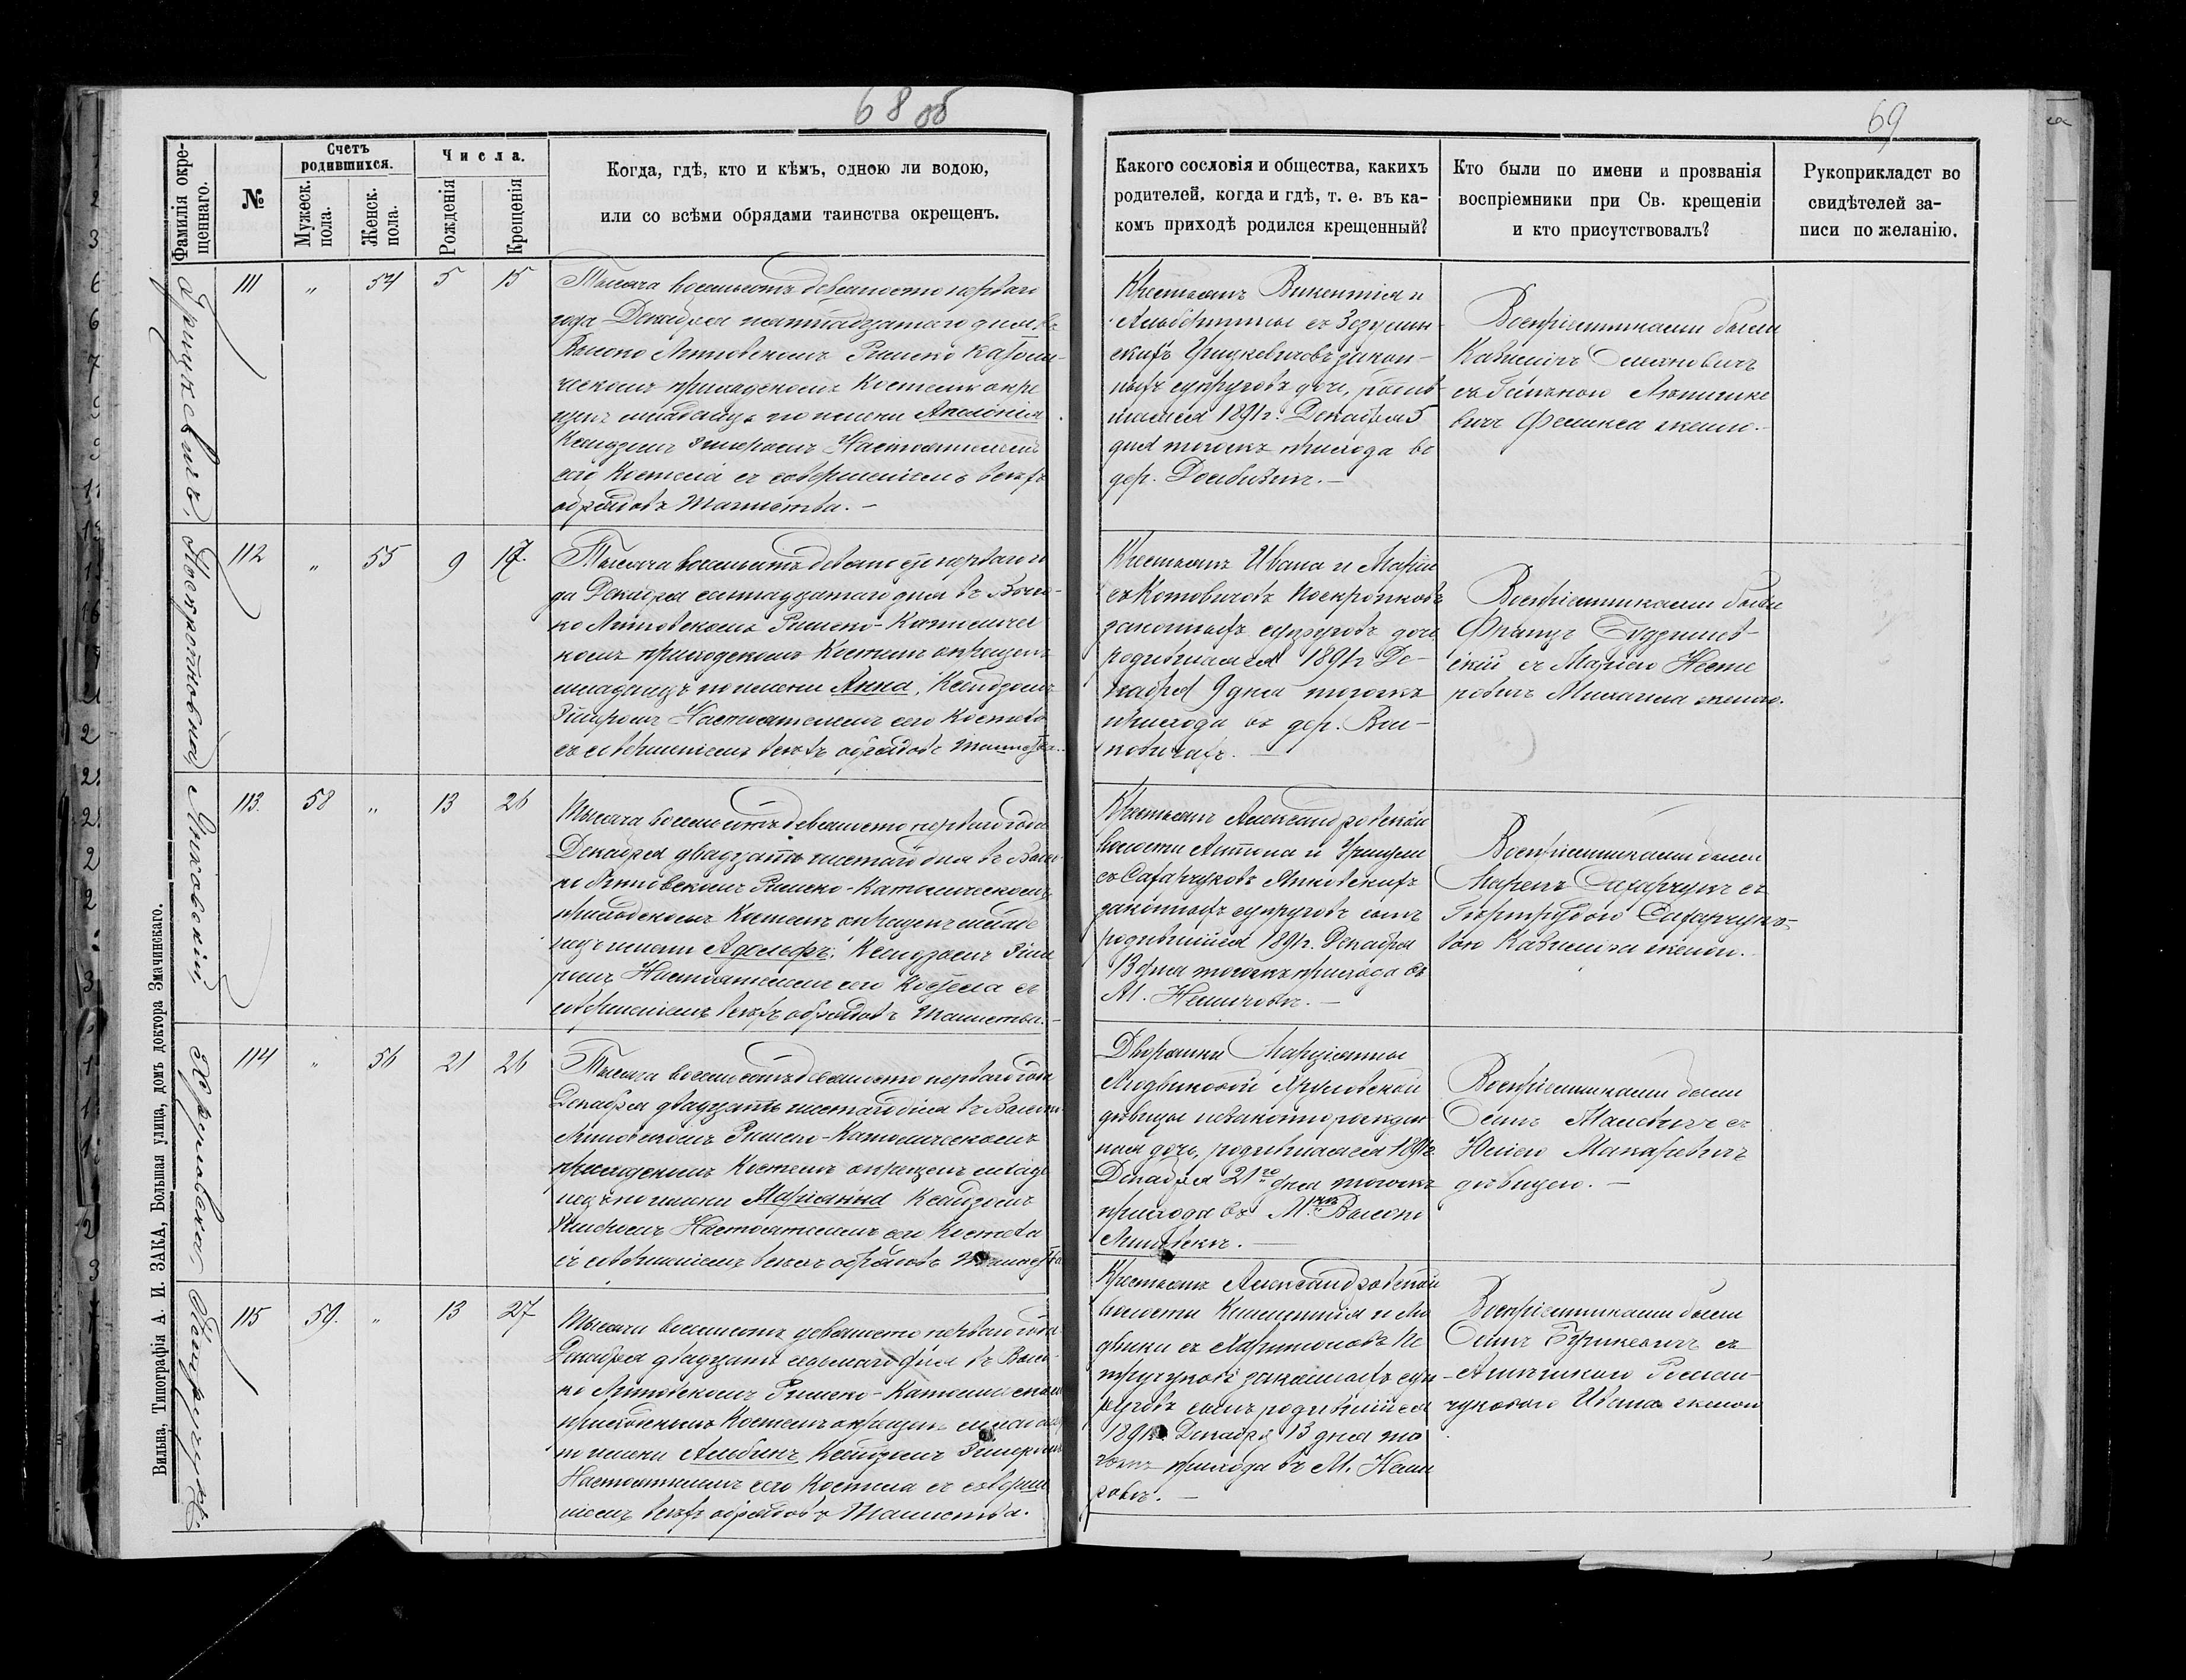 68 об
69
Фамилія окре-
щеннаго.
№
Счетъ
родившихся.
Мужеск.
пола.
Женск.
пола.
Числа.
Рожденія
Крещенія
Когда, гдѣ, кто и кѣмъ, одною ли водою,
или со всѣми обрядами таинства окрещенъ.
Какого сословія и общества, какихъ
родителей, когда и гдѣ, т. е. въ ка-
комъ приходѣ родился крещенный?
Кто были по имени и прозванія
воспріемники при Св. крещеніи
и кто присутствовалъ?
Рукоприкладст во
свидѣтелей за-
писи по желанію.
Грицкевичъ.
111 " 54 5 15
Тысяча восемьсотъ девяносто перваго
года Декабря пятнадцатаго дня въ
Высоко Литовскомъ Римско Католи-
ческомъ приходскомъ Костелѣ окре
щенъ младенецъ по имени Аполонія
Ксендзомъ Настоятелемъ
сего Костела съ совершеніемъ всѣхъ
обрядовъ Таинства. —
Крестьянъ Викентія и
Альбертины съ Зозулин-
скихъ Грицкевичовъ закон-
ныхъ супруговъ дочь, родив-
шаяся 1891г. Декабря 5
дня тогожъ прихода въ
дер.
Воспріемниками были
Казиміръ
съ
Феликса женою.—
112 " 55 9 17.
Тысяча восемьсотъ девяносто перваго го
да Декабря семнадцатаго дня въ Высо-
ко Литовскомъ Римско-Католичес
комъ приходскомъ Костелѣ окрещенъ
младенецъ по имени Анна, Ксендзомъ
Настоятелемъ сего Костела
съ совершеніемъ всѣхъ обрядовъ Таинства.
Крестьянъ Ивана и Маріи
съ Котовичовъ
законныхъ супруговъ дочь
родившаяся 1891г Де-
кабря 9 дня тогожъ
прихода въ дер.
Воспріемниками были
Францъ
скій съ Маріею Несте
ровичъ Михаила женою.
Янковскій
113. 58 " 13 26
Тысяча восемьсотъ девяносто перваго года
Декабря двадцать шестаго дня въ Высо-
ко Литовскомъ Римско-Католическомъ
приходскомъ Костелѣ окрещенъ младе
нецъ имени Адольфъ. Ксендзомъ
Настоятелемъ сего Костела съ
совершеніемъ всѣхъ обрядовъ Таинства.
Крестьянъ Александровской
волости Антона и Уршули
съ Сахарчуковъ Янковскихъ
законныхъ супруговъ сынъ
родившійся 1891г. Декабря
13 дня тогожъ прихода въ
М.
Воспріемниками были
Сахарчукъ съ
Гертрудою Сахарчуко-
вою Казиміра женою.
114 " 56 21 26
Тысяча восемьсотъ девяносто перваго года
Декабря двадцать шестаго дня въ Высоко
Литовскомъ Римско-Католическомъ
приходскомъ Костелѣ окрещенъ младе
нецъ по имени Маріанна Ксендзомъ
Настоятелемъ сего Костела
съ совершеніемъ всѣхъ обрядовъ Таинства
Дворянки Марціанны
Людвиковой
дѣвицы незаконнорожден
ная дочь, родившаяся 1891г
Декабря 21го дня тогожъ
прихода въ М. Высоко
Литовскъ. —
Воспріемниками были
Осипъ съ
Юліею Макаревичъ
дѣвицею. —
Петручукъ
115 59. " 13 27
Тысяча восемьсотъ девяносто перваго года
Декабря двадцать седьмаго дня въ Высо-
ко Литовскомъ Римско-Католическомъ
приходскомъ Костелѣ окрещенъ младенецъ
по имени Альбинъ Ксендзомъ
Настоятелемъ сего Костела съ соверше
ніемъ всѣхъ обрядовъ Таинства.
Крестьянъ Александровской
волости Климентія и Лю
двики съ Харитоновъ Пе
тручуковъ законныхъ суп-
руговъ сынъ родившійся
1891г. Декабря 13 дня то
гожъ прихода въ М.
Воспріемниками были
Осипъ съ
Роман-
чуковою Ивана женою
Вильна, Типографія А. И. ЗАКА, Большая улица, домъ доктора Змачинскаго.